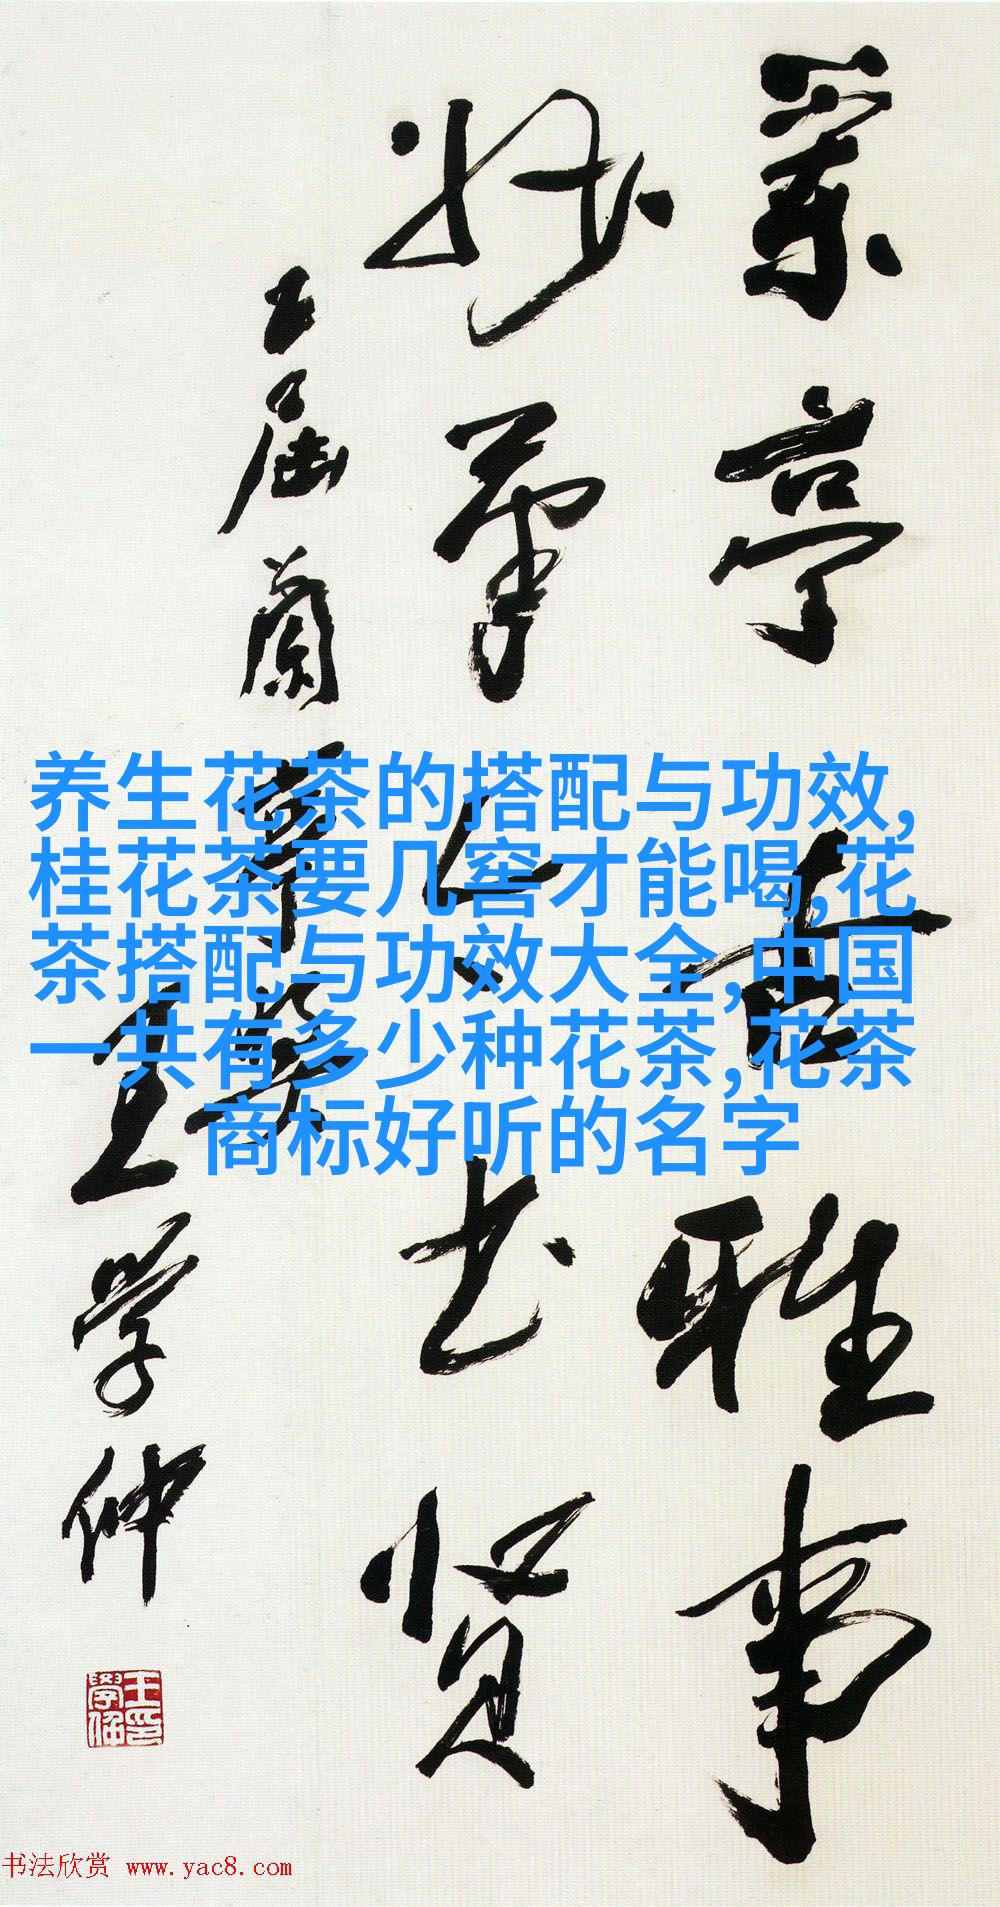 养生花茶的搭配与功效,
桂花茶要几窖才能喝,花
茶搭配与功效大全,中国
一共有多少种花茶,花茶
商标好听的名字
兰亭雅事
妙笔书贤
王学仲
书法欣赏 www.yac8.com